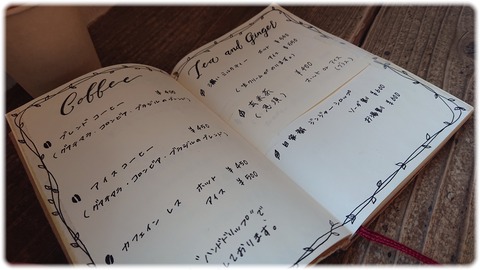 Coffee
ブレンド コーヒー ¥450
(グアテマラ・コロンビア・ブラジルのブレンド)
アイスコーヒー ¥450
(グアテマラ・コロンビア・ブラジルのブレンド)
カフェイン レス ホット ¥450
アイス ¥500
"ハンドドリップ"で
しております。
Tea and Ginger
ホット
アイス
玄米茶 ¥450
自家製 ジンジャーシロップ
ソーダ割 ¥500
お湯割